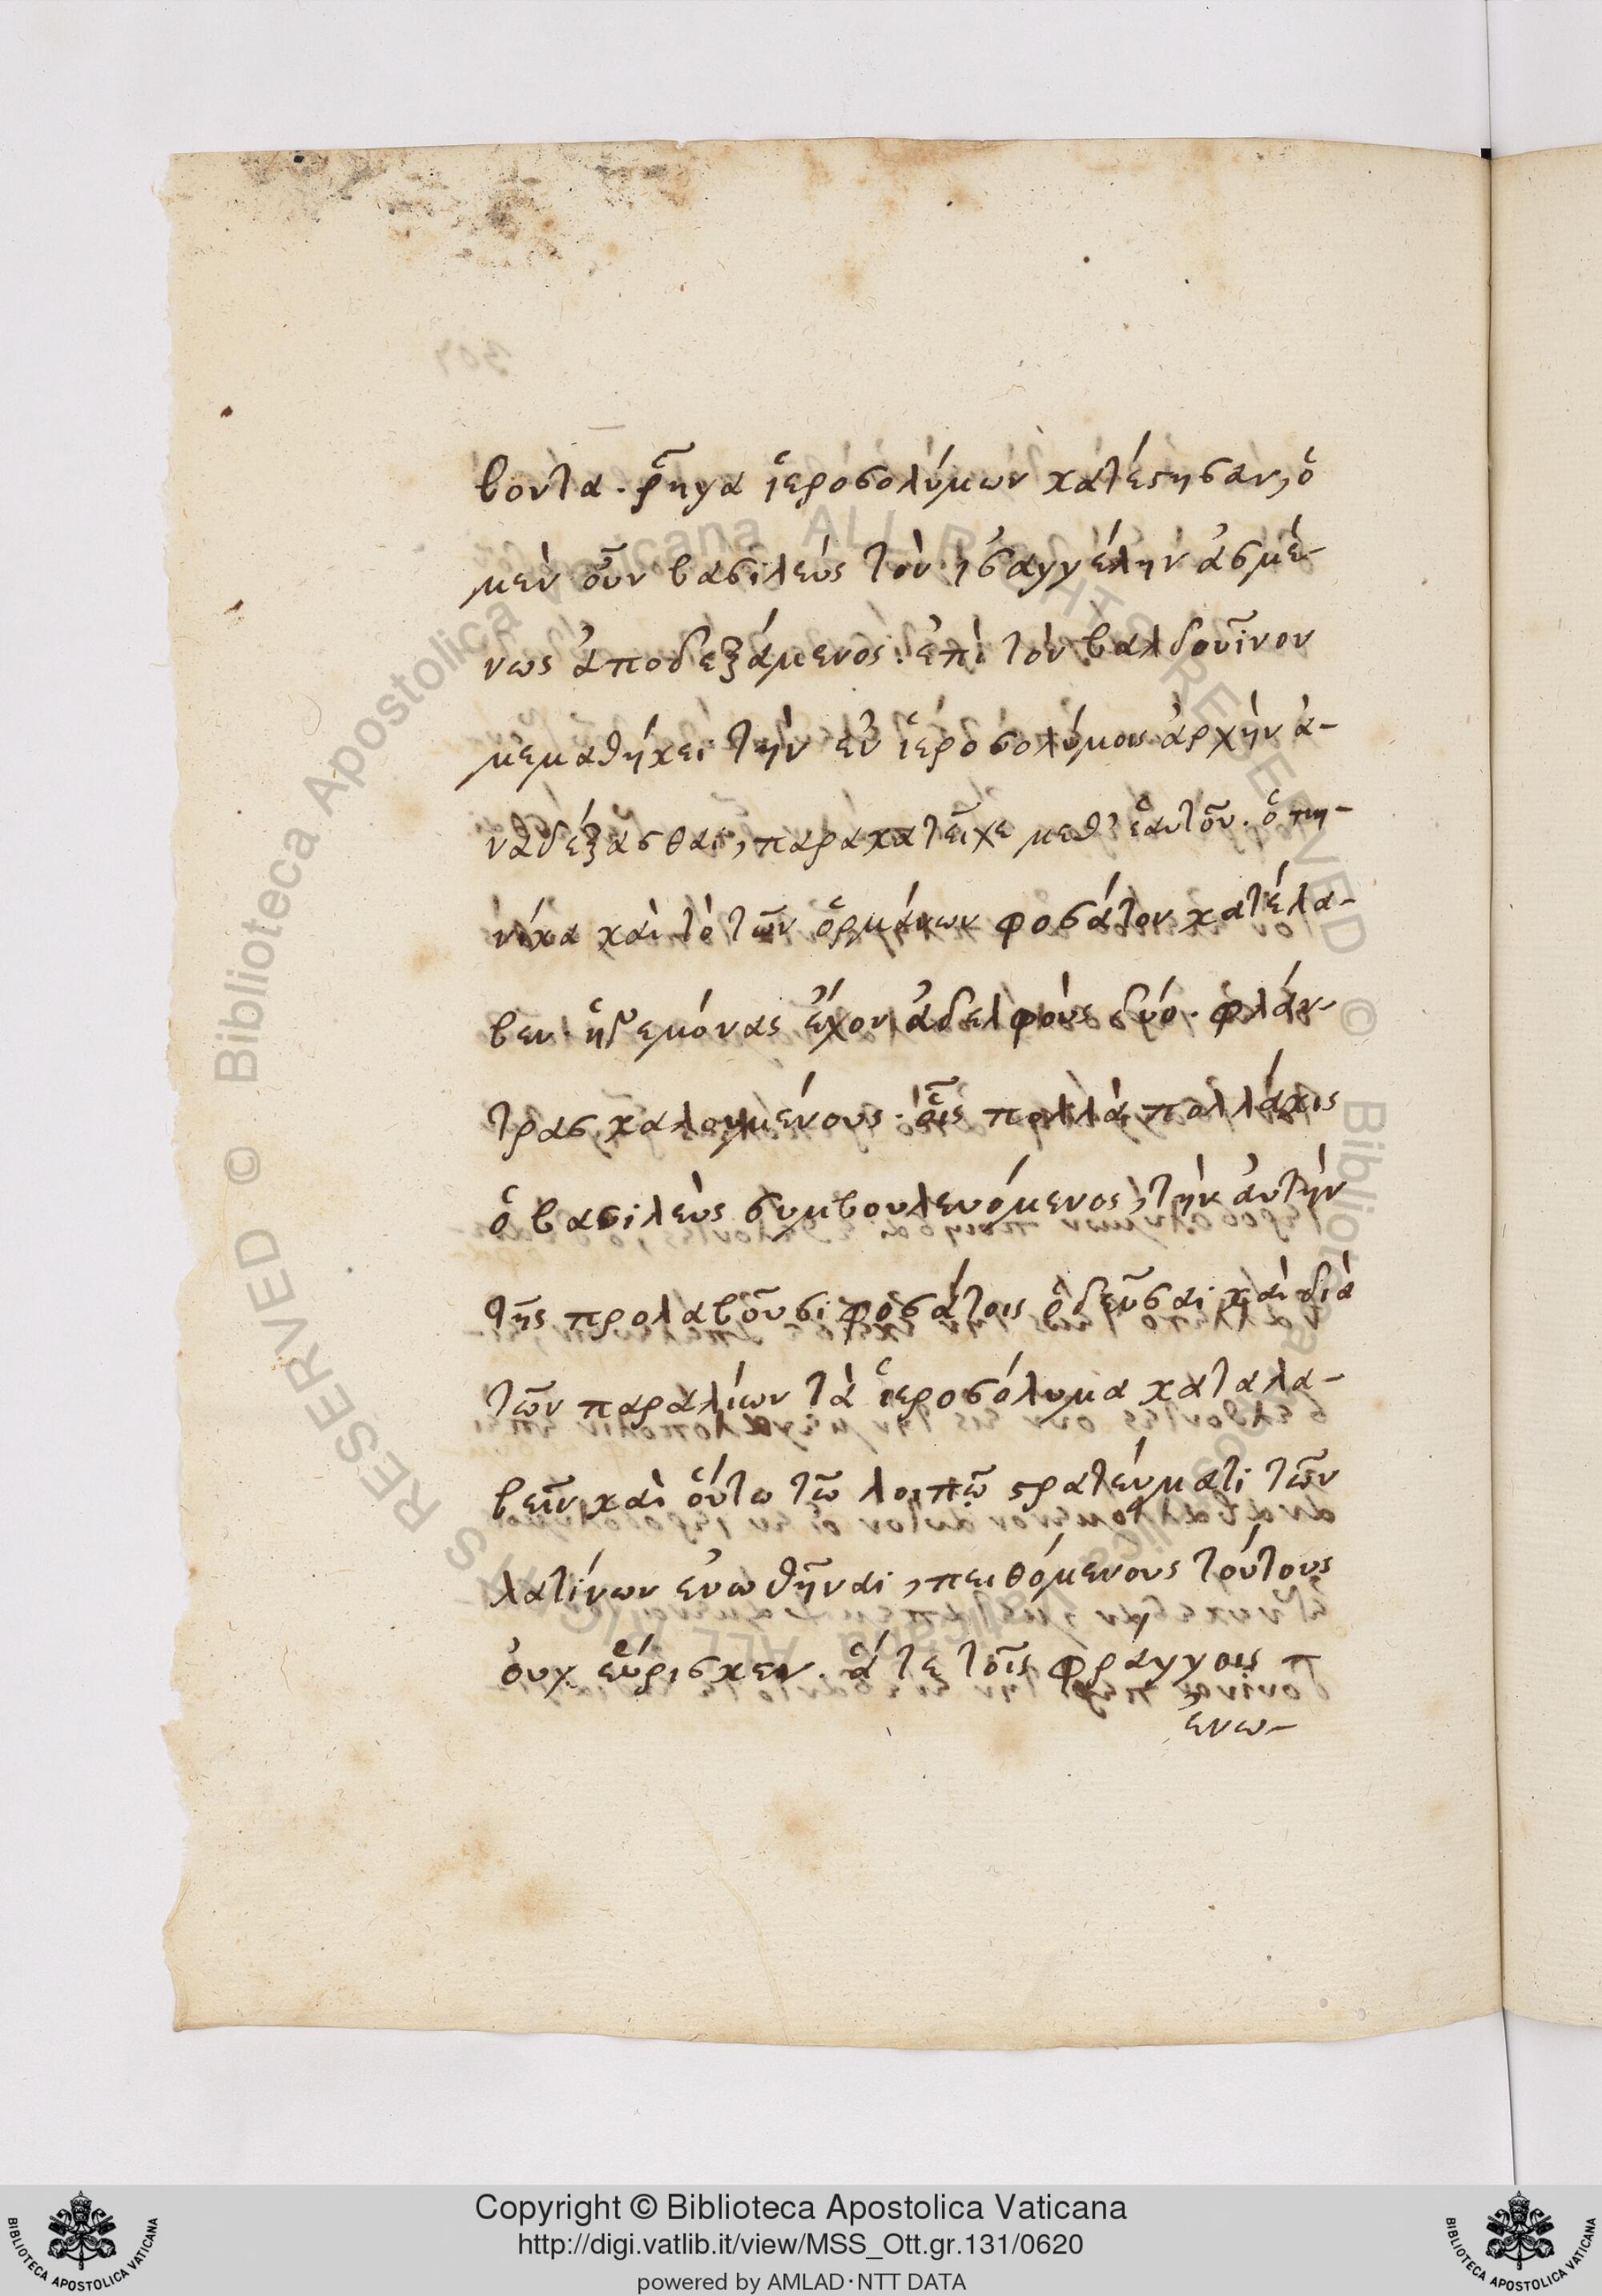 βοντα. ῥῆγα ἱεροσολύμων κατέστησαν, ὁ
μὲν οὖν βασιλεὺς τὸν ἰσαγγέλην ἀσμέ-
νως ἀποδεξάμενος. ἐπὶ τὸν βαλδουῖνον
μεμαθήκει τὴν ἐν ἱεροσολύμοις ἀρχὴν ἀ-
ναδέξασθαι, παρακατεῖχε μεθ' ἑαυτοῦ. ὁπη-
νίκα καὶ τὸ τῶν ὁρμάνων φοσάτον κατέλα-
βεν. ἡγεμόνας ἔχον ἀδελφοὺς δύο. φλάν-
τρας καλουμένους. οἷς πολλὰ πολλάκις
ὁ βασιλεὺς συμβουλευόμενος, τὴν ἀυτὴν
τῆς προλαβοῦσι φοσάτοις ὁδεῦσαι καὶ διὰ
τῶν παραλίων τὰ ἱεροσόλυμα καταλα-
βεῖν καὶ ὅυτω τῶ λοιπῷ στρατεύματι τῶν
λατίνων ἐνωθῆναι, πειθόμενους τούτους
ὀυχ εὕρισκεν. ἅ τε τοῖς φράγγοις π
ἐνω-
Copyright © Biblioteca Apostolica Vaticana
http://digi.vatlib.it/view/MSS_Ott.gr.131/0620
powered by AMLAD·NTT DATA
BIBLIOTECA APOSTOLICA VATICANA
BIBLIOTECA APOSTOLICA VATICANA